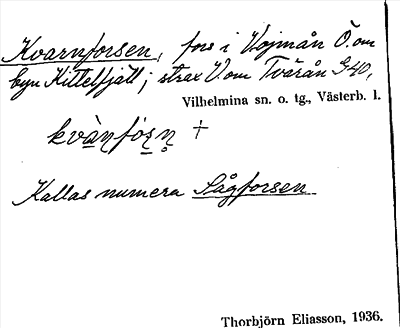 Kvarnforsen, fors i Vojmån Ö. om
byn Kittelfjäll; strax V. om Tvärån G40,
Vilhelmina sn. o. tg., Västerb. l.
kvàṇfós̱ṇ +
Kallas numera Sågforsen
Thorbjörn Eliasson, 1936.